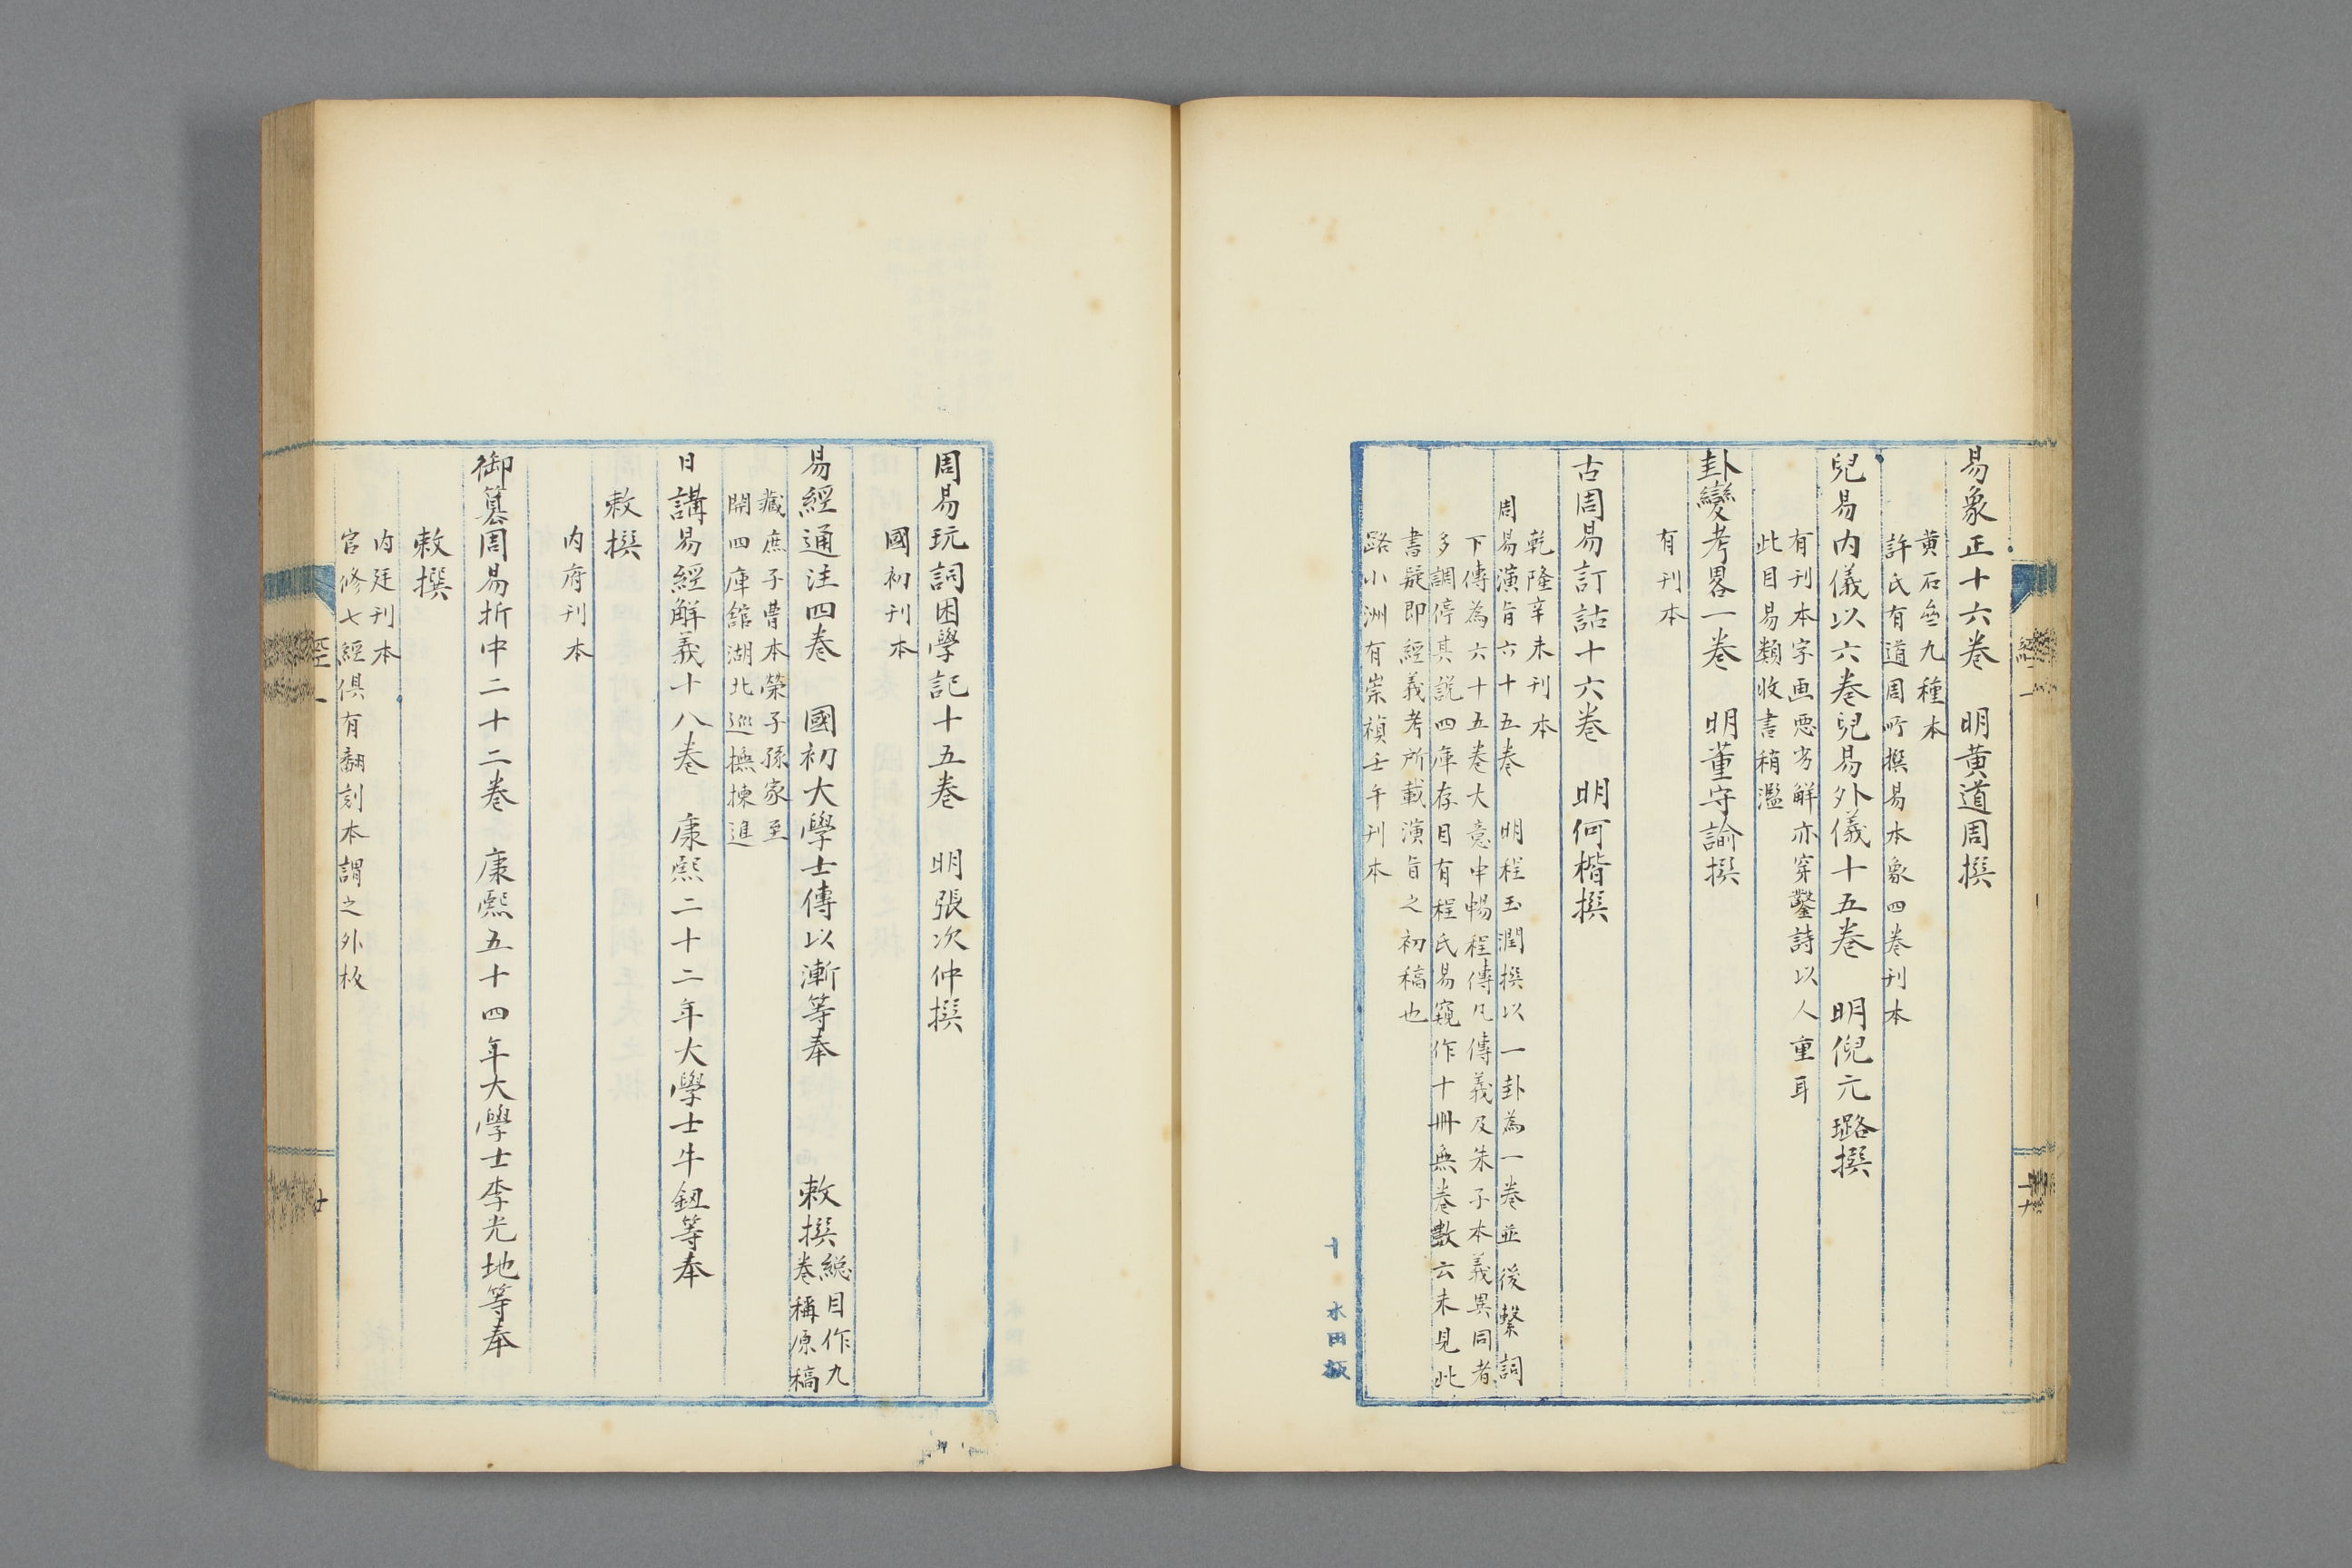 易象正十六卷　明黄道周撰
黄石齋九種本
許氏有道周所撰易本象四卷刊本
兒易内儀以六卷兒易外儀十五卷　明倪元璐撰
有刊本字画惡劣解亦穿鑿詩以人重耳
此目易類收書稍濫
卦變考畧一卷　明董守諭撰
有刊本
古周易訂詁十六卷　明何楷撰
乾隆辛未刊本
周易演旨六十五卷　明程玉潤撰以一卦為一卷並後繫詞
下傳為六十五卷大意申暢程傳凡傳義及朱子本義異同者
多調停其説四庫存目有程氏易窺作十冊無卷數云未見此
書疑即經義考所載演旨之初稿也
路小洲有崇禎壬午刊本
十　水田板
周易玩詞困學記十五卷　明張次仲撰
國初刊本
易經通注四卷　國初大學士傅以漸等奉　敕撰
總目作九
卷稱原稿
藏庶子曹本榮子孫家至
開四庫館湖北巡撫揀進
日講易經解義十八卷　康熙二十二年大學士牛鈕等奉
敕撰
内府刊本
御纂周易折中二十二卷　康熙五十四年大學士李光地等奉
敕撰
内廷刊本
官修七經俱有翻刻本謂之外板